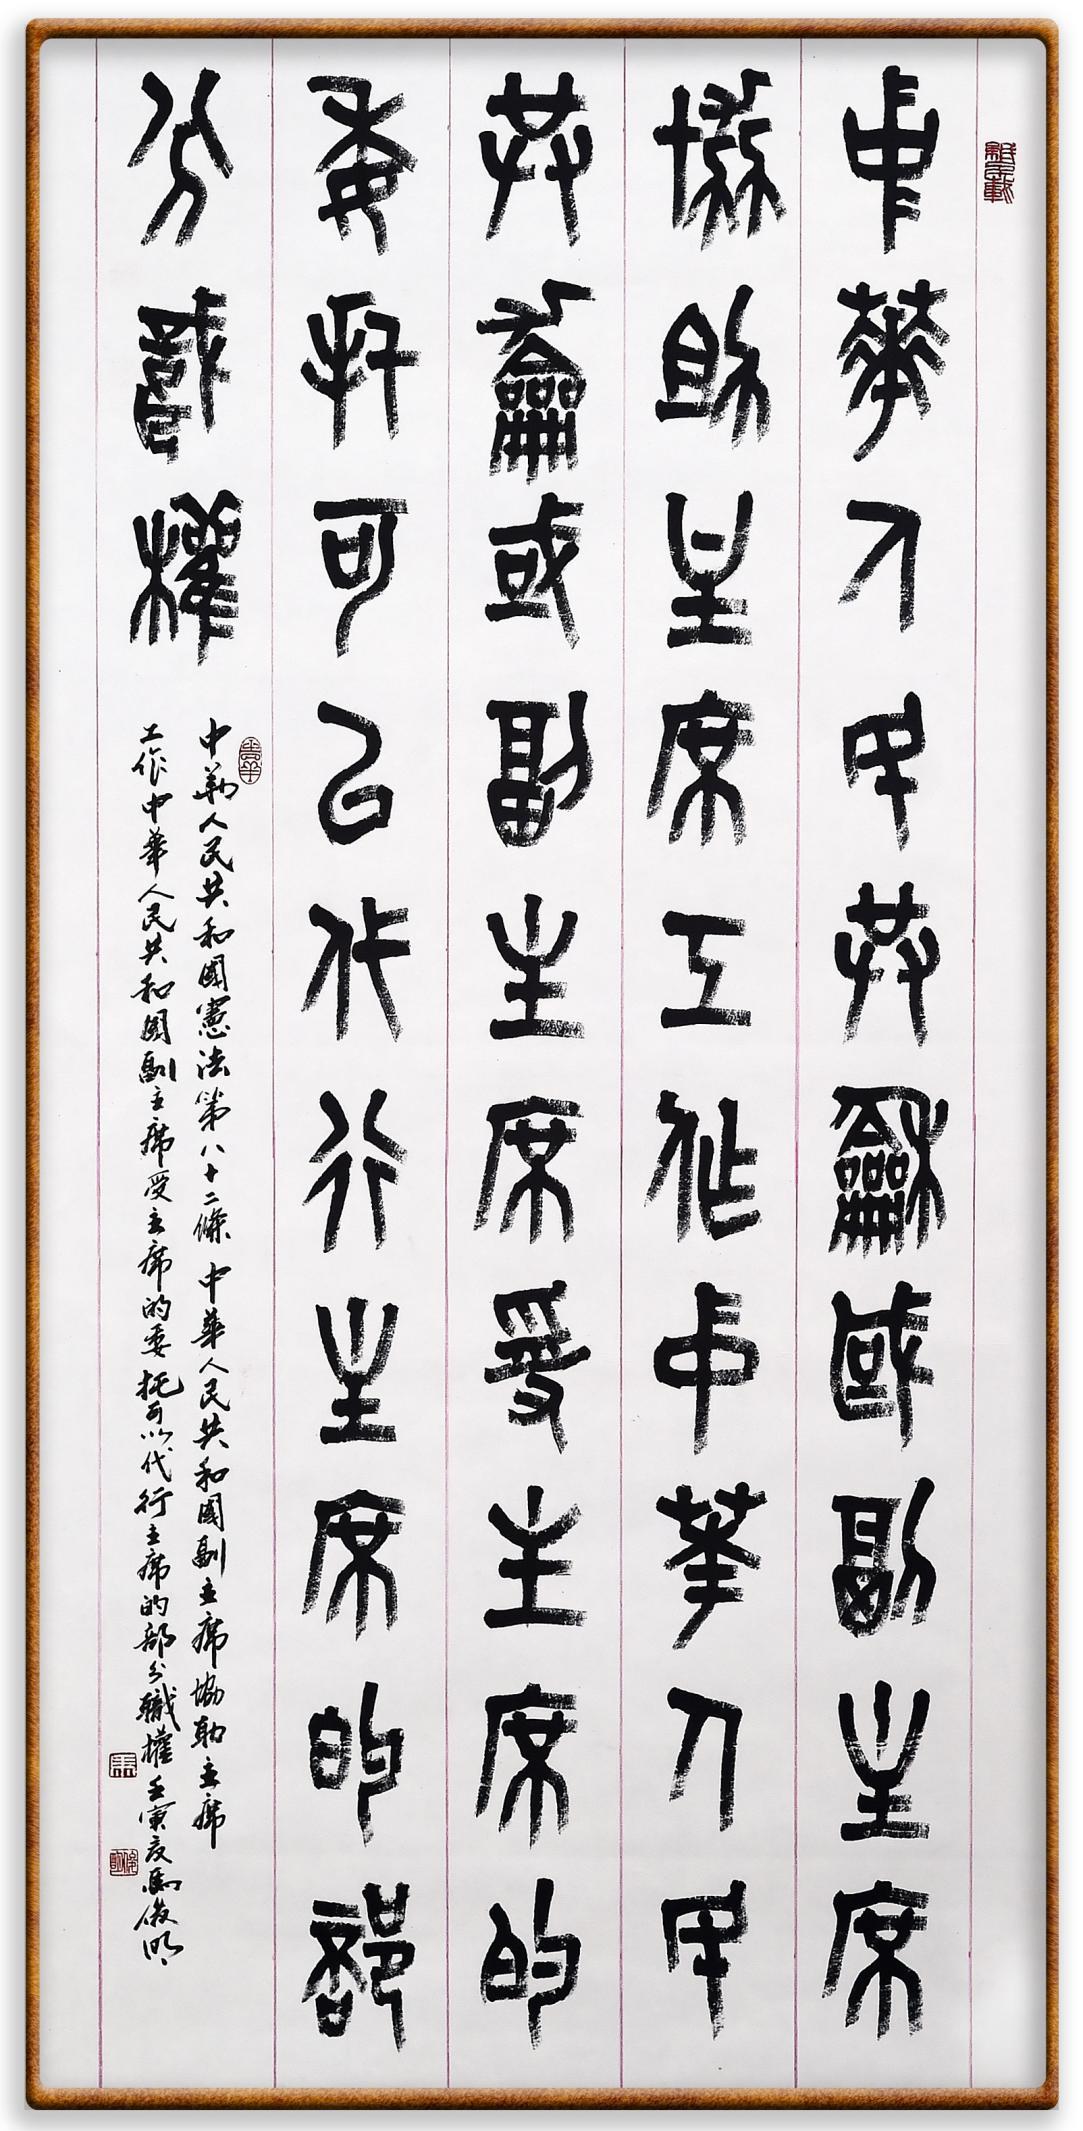 中華人民共龢國副主席
協助主席工作中華人民
共龢或副主席受主席的
委托可以代行主席的部
分職權
中華人民共和國憲法第八十二條 中華人民共和國副主席協助主席
工作中華人民共和國副主席受主席的委托可以代行主席的部分職權壬寅夏馬俊明